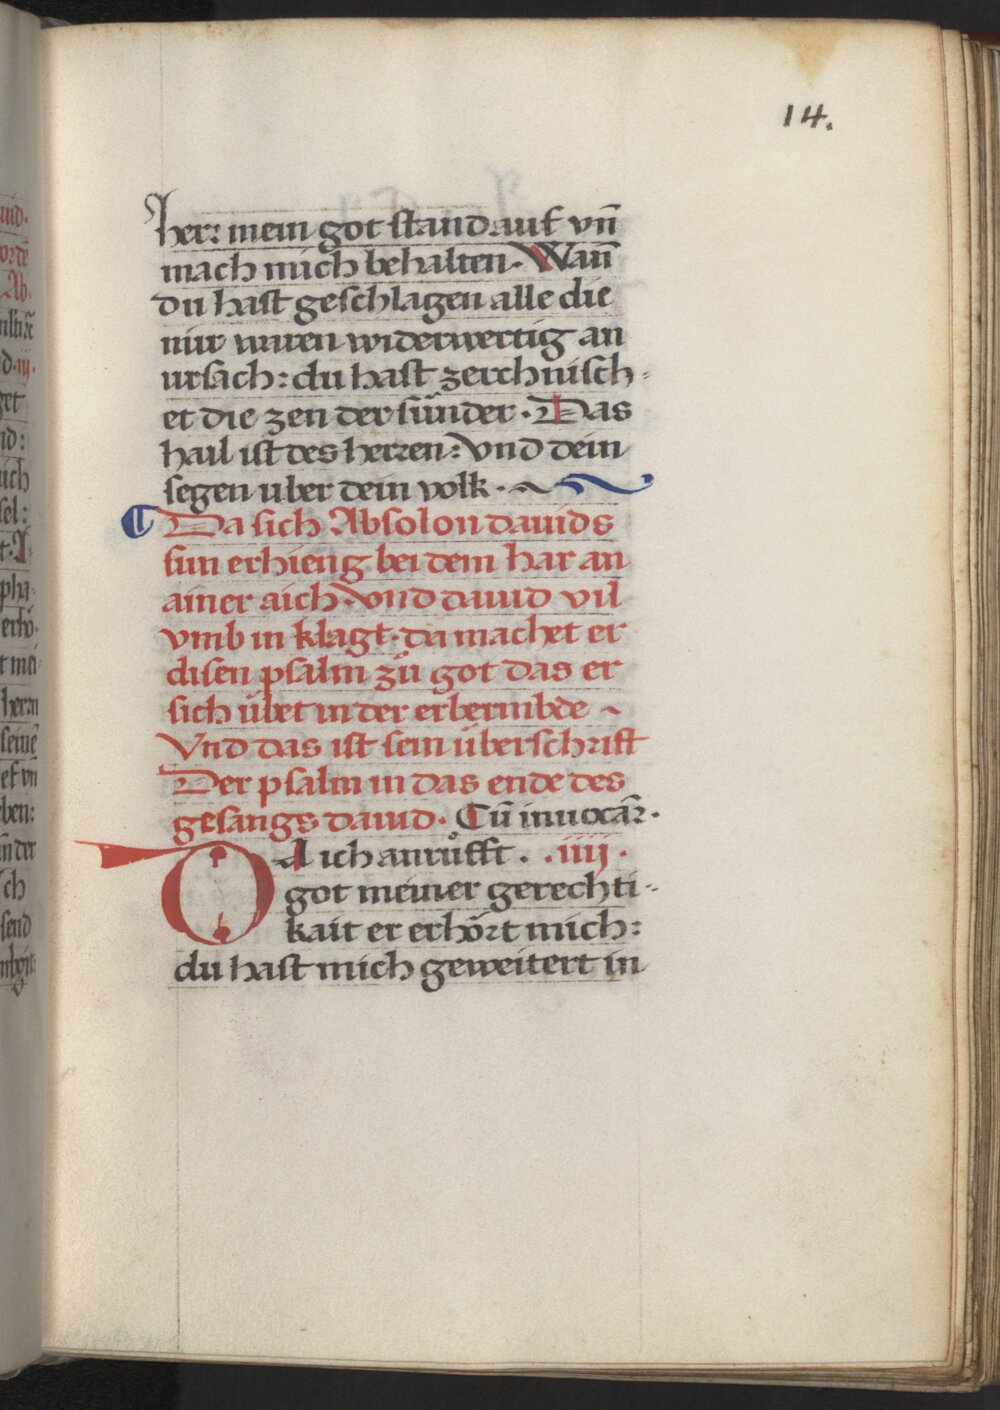 14.
herr mein got stand auf vn̄
mach mich behalten. Wan̄
du hast geschlagen alle die
mir waren widerwertig an
ursach: du hast zerchnisch-
et die zen der sünder. Das
hail ist des herren: Vnd dein
segen uber dein volk.
Da sich Absolon dauids
sun erhieng bei dem har an
ainer aich. Vnd dauid vil
vmb in klagt. da machet er
disen psalm zů got das er
sich übet in der erbermbde
Vnd das ist sein überschrift
Der psalm in das ende des
gesangs dauid. Cū inuocarē.
DA ich anrůfft. .iiij.
got meiner gerechti-
kait er erhört mich:
du hast mich geweitert in